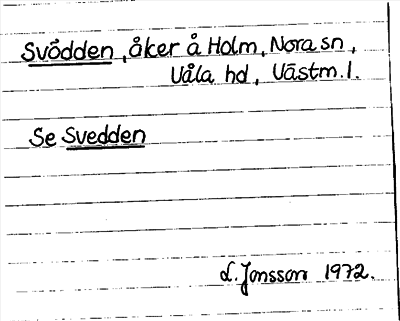 Svödden, åker å Holm, Nora sn,
Våla hd, Västm. l.
Se Svedden
L. Jonsson 1972.